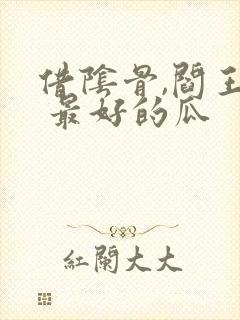 借陰骨,閻王
最好的瓜
紅闌大大